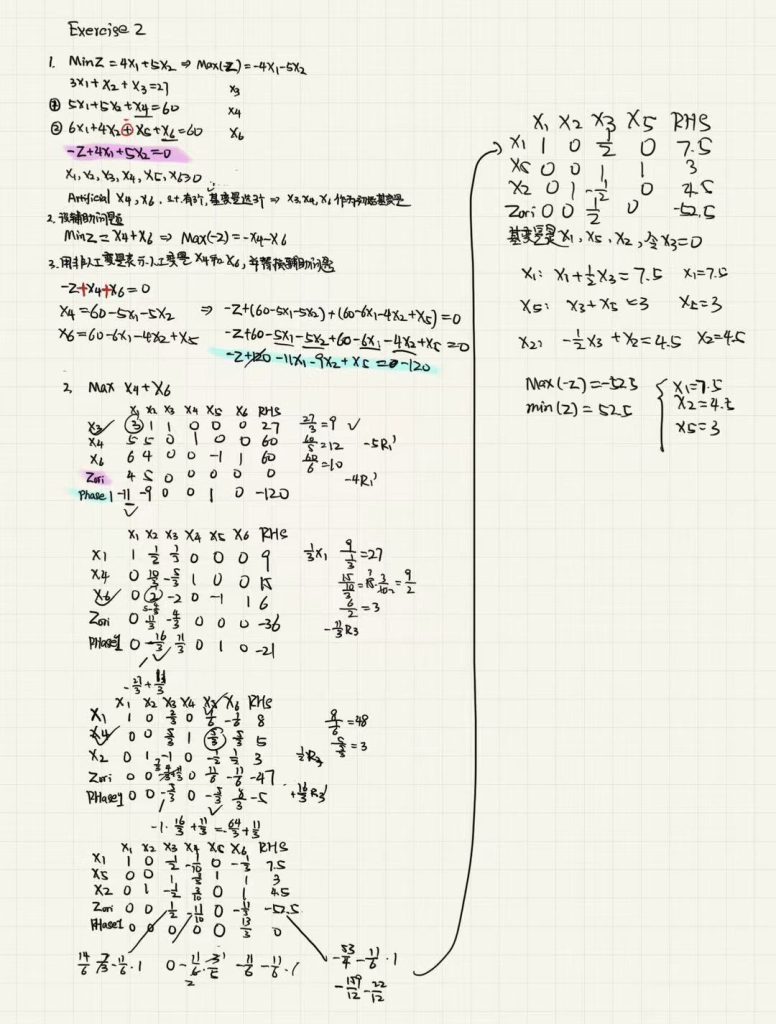 Exercise 2
1. Min Z = 4X₁+5X₂ ⇒ Max(-Z) = -4X₁-5X₂
3X₁+X₂+X₃=27 X₃
① 5X₁+5X₂+X₄=60 X₄
② 6X₁+4X₂⊕X₅+X₆=60 X₆
-Z+4X₁+5X₂=0
X₁, X₂, X₃, X₄, X₅, X₆≥0
Artificial X₄, X₆. s.t.有3个,基变量选3个 ⇒ X₃, X₄, X₆ 作为初始基变量
2. 设辅助问题
Min Z = X₄+X₆ ⇒ Max(-Z) = -X₄-X₆
3. 用非人工变量表示人工变量 X₄和X₆, 并替换辅助问题
-Z+X₄+X₆=0
X₄=60-5X₁-5X₂ ⇒ -Z+(60-5X₁-5X₂)+(60-6X₁-4X₂+X₅)=0
X₆=60-6X₁-4X₂+X₅ -Z+60-5X₁-5X₂+60-6X₁-4X₂+X₅=0
-Z+120-11X₁-9X₂+X₅=0-120
2. Max X₄+X₆
X₁ X₂ X₃ X₄ X₅ X₆ RHS
X₃ 3 1 1 0 0 0 27 27/3=9 ✓
X₄ 5 5 0 1 0 0 60 60/5=12 -5R₁'
X₆ 6 4 0 0 -1 1 60 60/6=10
Zori 4 5 0 0 0 0 0 -4R₁'
Phase1 -11 -9 0 0 1 0 -120
X₁ X₂ X₃ X₄ X₅ X₆ RHS
X₁ 1 1/3 1/3 0 0 0 9 1/3X₁ 9/(1/3)=27
X₄ 0 10/3 -5/3 1 0 0 15 15/(10/3)=15·3/10=9/2
X₆ 0 2 -2 0 -1 1 6 6/2=3
Zori 0 11/3 -4/3 0 0 0 -36 -11/3R3
Phase1 0 -16/3 11/3 0 1 0 -21
X₁ X₂ X₃ X₄ X₅ X₆ RHS
X₁ 1 0 2/3 0 1/6 -1/6 8 8/(1/6)=48
X₄ 0 0 5/3 1 5/3 -5/3 5 5/(5/3)=3
X₂ 0 1 -1 0 -1/2 1/2 3 1/2R3
Zori 0 0 0 11/6 -11/6 -47
Phase1 0 0 -5/3 0 -5/3 8/3 -5 +16/3R3'
-1·16/3+11/3=-64/3+11/3
X₁ X₂ X₃ X₄ X₅ X₆ RHS
X₁ 1 0 1/2 -1/10 0 -1/3 7.5
X₅ 0 0 1 3/5 1 1 3
X₂ 0 1 -1/2 3/10 0 1 4.5
Zori 0 0 1/2 -11/10 0 -11/3 -52.5
Phase1 0 0 0 0 0 13/3 0
14/6 -11/6·1 0-11/6·3/5 -11/6-11/6·1 -53/4-11/6·1
-159/12-22/12
X₁ X₂ X₃ X₅ RHS
X₁ 1 0 1/2 0 7.5
X₅ 0 0 1 1 3
X₂ 0 1 -1/2 0 4.5
Zori 0 0 1/2 0 -52.5
基变量是X₁, X₅, X₂, 令X₃=0
X₁: X₁+1/2X₃=7.5 X₁=7.5
X₅: X₃+X₅=3 X₅=3
X₂: -1/2X₃+X₂=4.5 X₂=4.5
Max(-Z)=-52.5 X₁=7.5
min(Z)=52.5 X₂=4.5
X₅=3